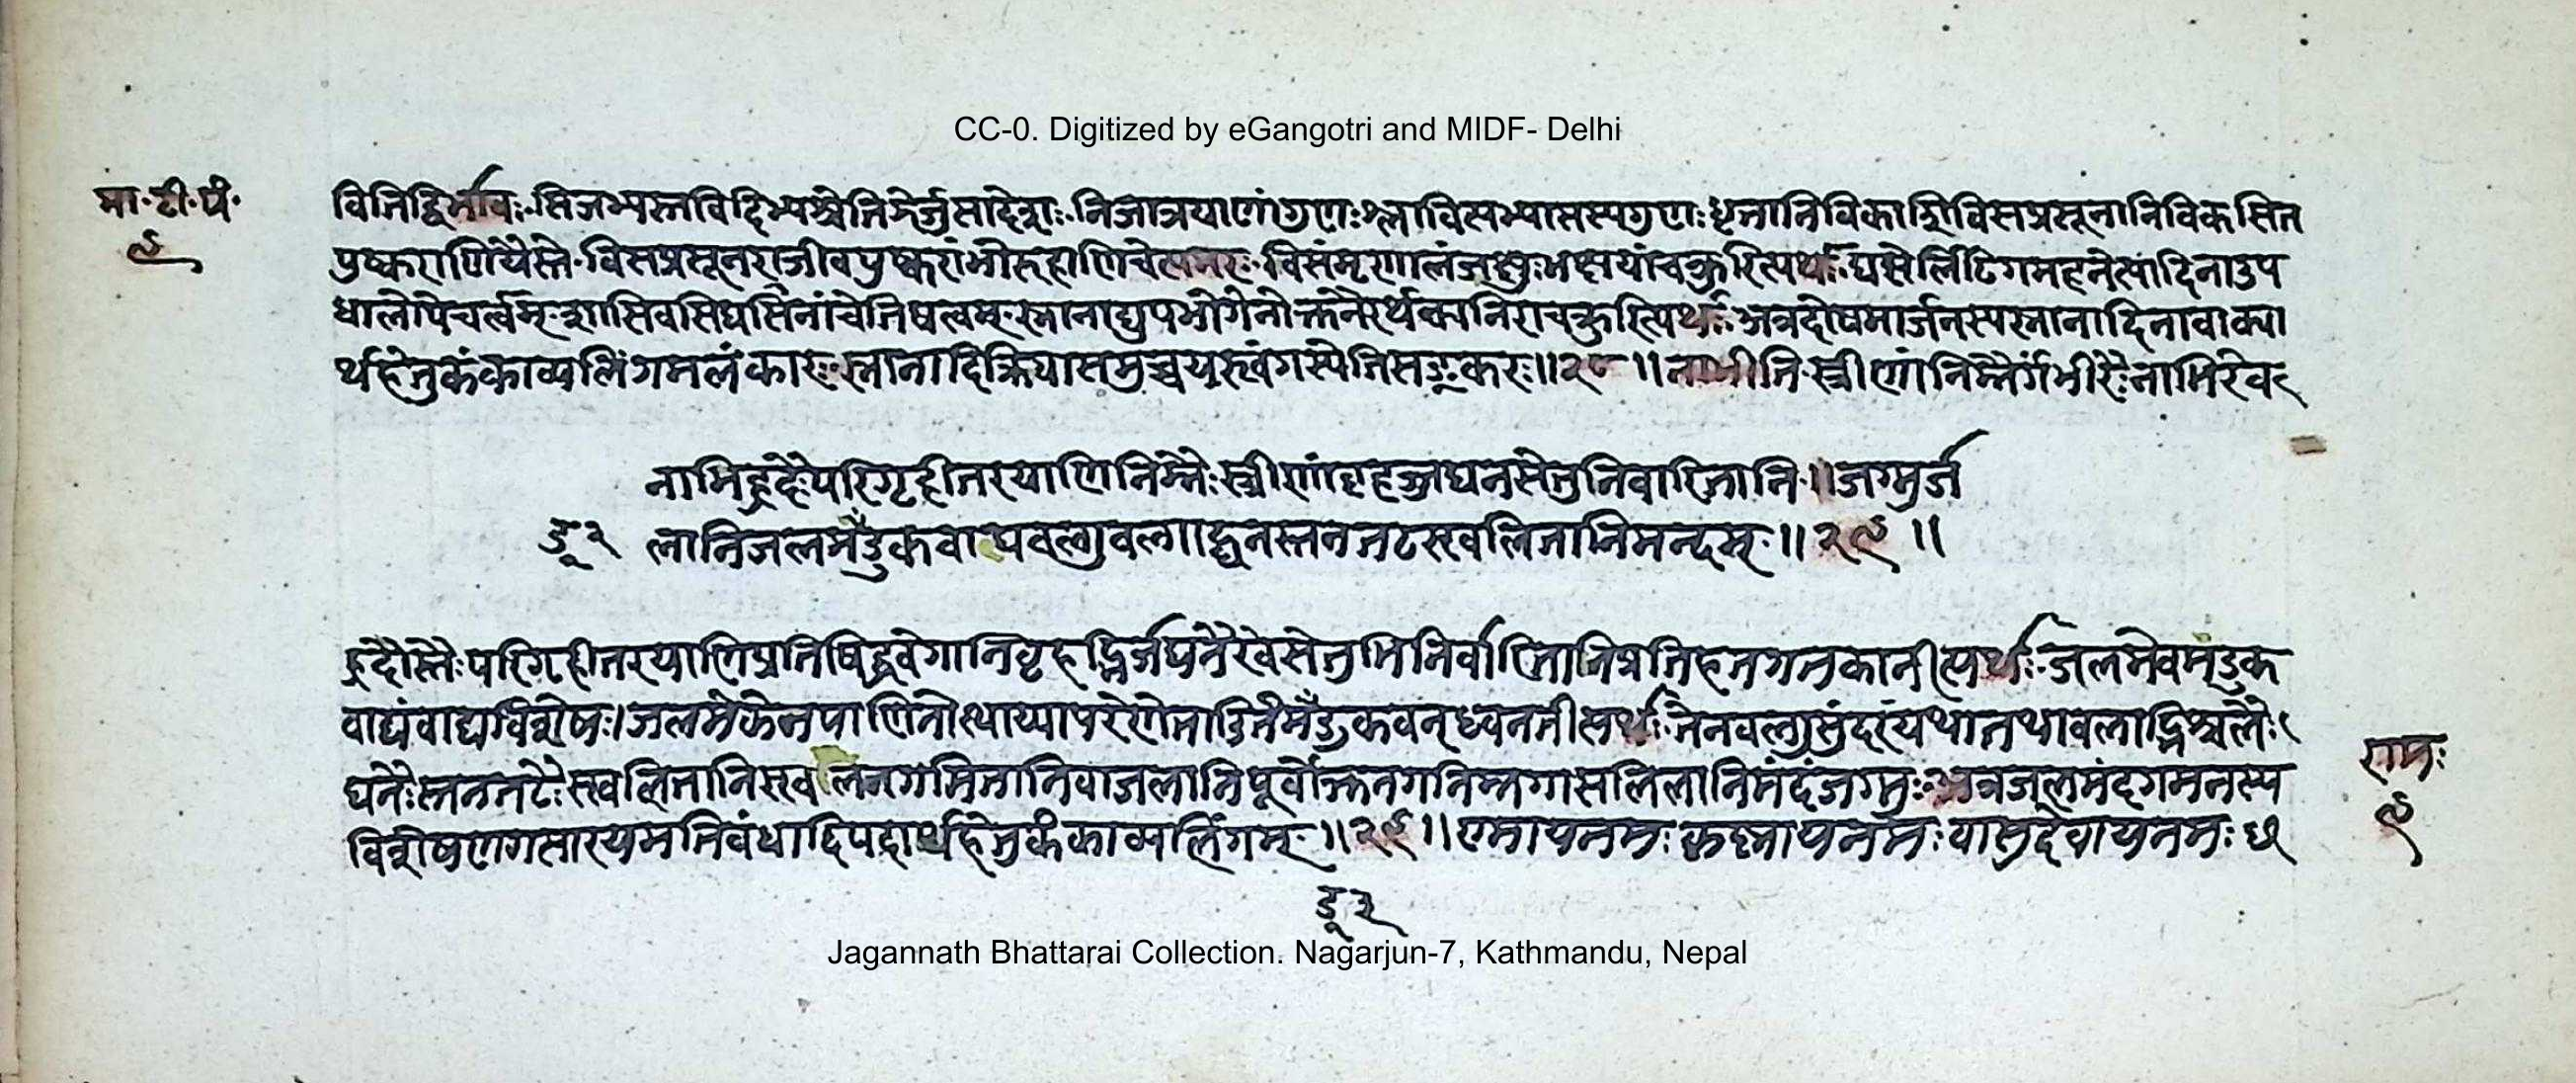 CC-0. Digitized by eGangotri and MIDF- Delhi
मा॰टी॰पं॰
९
वितिद्विर्भावः सिजभ्यस्तविदिभ्यश्चेतिझेर्जुसादेशः निजात्रयाणांगुणःश्लाविसभ्यासस्यगुणः धृतानिविकाशिविसप्रसूनानिविकसित
पुष्कराणियैस्ते विसप्रसूनराजीवपुष्करांभोरुहाणिचेत्यमरः विसंमृणालंजक्षुःभक्षयांचक्रुरित्यर्थः घसेर्लिटिगमहनेत्यादिनाउप
धालोपेचर्त्वम् शासिवसिघसिनांचेतिषत्वम् स्नानाद्युपभोगेनोक्तनैरर्थक्यनिराचक्रुरित्यिर्थः अत्रदोषमार्जनस्यस्नानादिनावाक्या
र्थहेतुकंकाव्यलिंगमलंकारः स्नानादिक्रियासमुच्चयस्त्वंगस्येतिसङ्करः॥२८॥ नाभीति स्त्रीणांनिम्नैर्गंभीरैःनाभिरेव
नाभिह्रदैःपरिगृहीतरयाणिनिम्नैःस्त्रीणांबृहज्जघनसेतुनिवारितानि॥जग्मुर्ज
लानिजलमँडुकवाद्यवल्गुवल्गाद्घनस्तनतटस्खलितानिमन्दम्॥२९॥
डू२
ह्रदौस्तैःपरिगिहीतरयाणिप्रतिषिद्धवेगानिबृहद्भिर्जघनैरेवसेतुभिर्निर्वारितानिप्रतिहतगतकानीत्यर्थः जलमेवमंडुक
वाद्यंवाद्यविशेषः।जलमेकेनपाणिनोत्थाप्यापरेणेताडितंमँडुकवन्ध्वनतीत्यर्थः तेनवल्गुसुंदरंयथातथावलाद्भिश्चलैः
घनैःस्तनतटैःस्खलितानिस्खलनगमितानिवाजलानिपूर्वोक्तनगनिम्नगासलिलानिमंदंजग्मुः अत्रजलमंदगमनस्य
विशेषणगत्सारयमतिवंधादिपदार्थहेतुकंकाव्यलिंगम्॥२९॥ नमः नमःवासुदेवायनमः
रामः
९
डू२
Jagannath Bhattarai Collection. Nagarjun-7, Kathmandu, Nepal